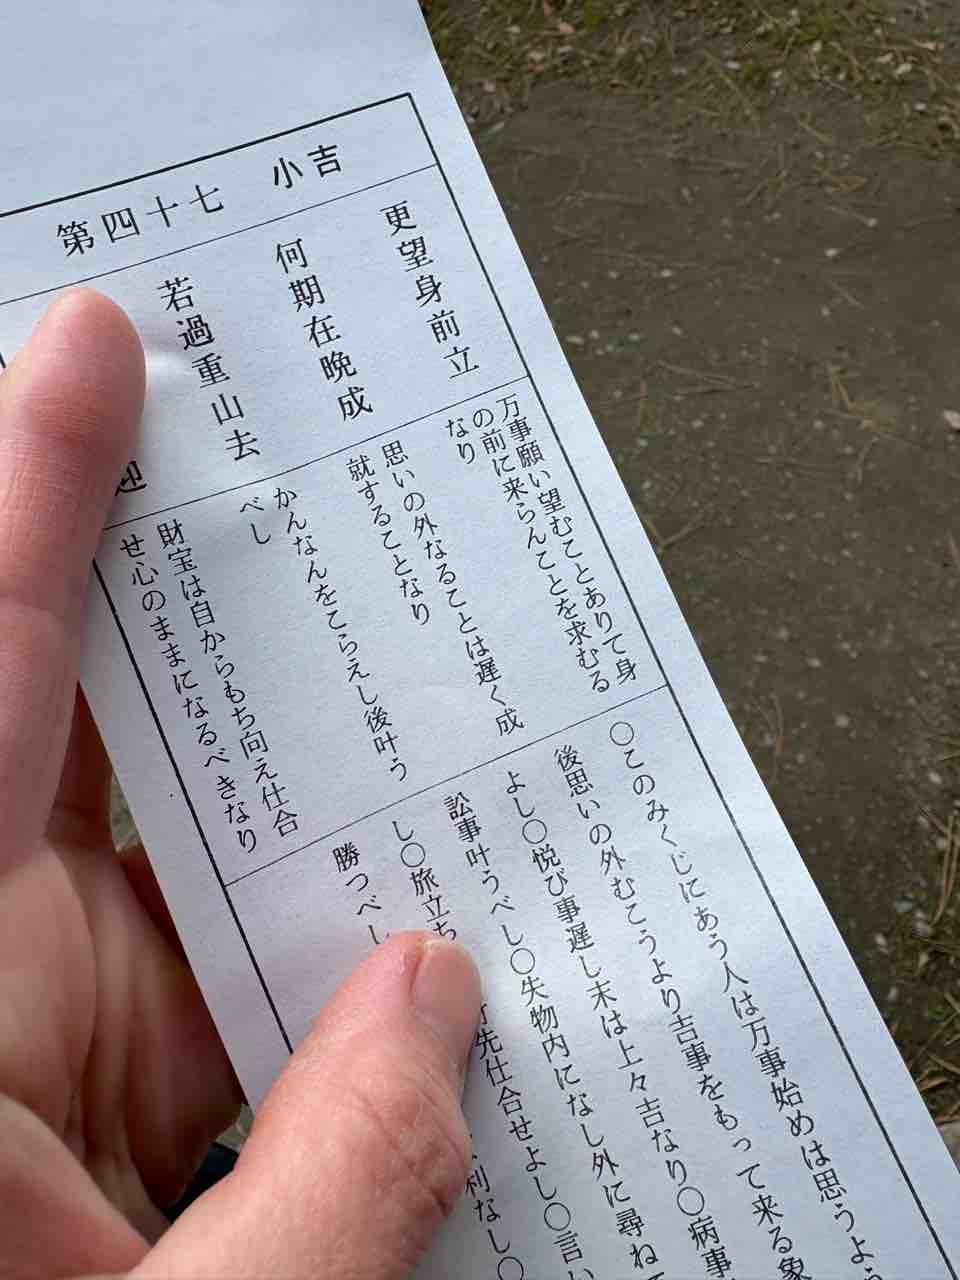 第四十七 小吉
更望身前立
何期在晩成
若過重山去
迎
万事願い望むことありて身
の前に来らんことを求むる
なり
思いの外なることは遅く成
就することなり
かんなんをこらえし後叶う
べし
財宝は自からもち向え仕合
せ心のままになるべきなり
〇このみくじにあう人は万事始めは思うよう
後思いの外むこうより吉事をもって来る象
よし〇悦び事遅し末は上々吉なり〇病事
訟事叶うべし〇失物内になし外に尋ねて
し〇旅立ち 先仕合せよし〇言い
勝つべし 利なし〇